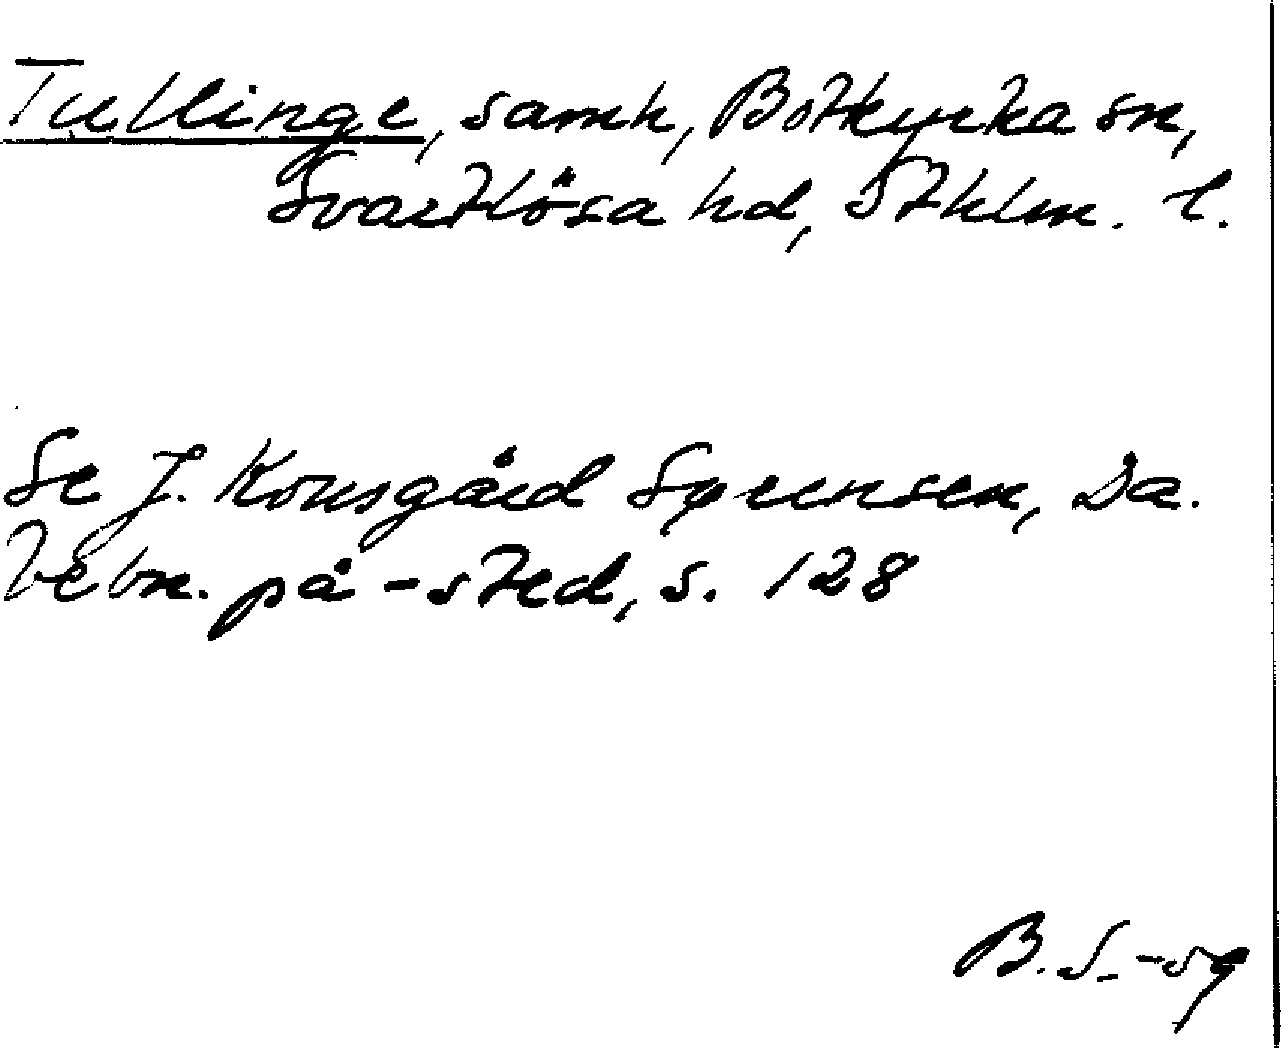 Tullinge, samh, Botkyrka sn,
Svartlösa hd, Sthlm. l.
Se J. Kousgård Sørensen, Da.
bebn. på -sted, s. 128
B.S.-sg